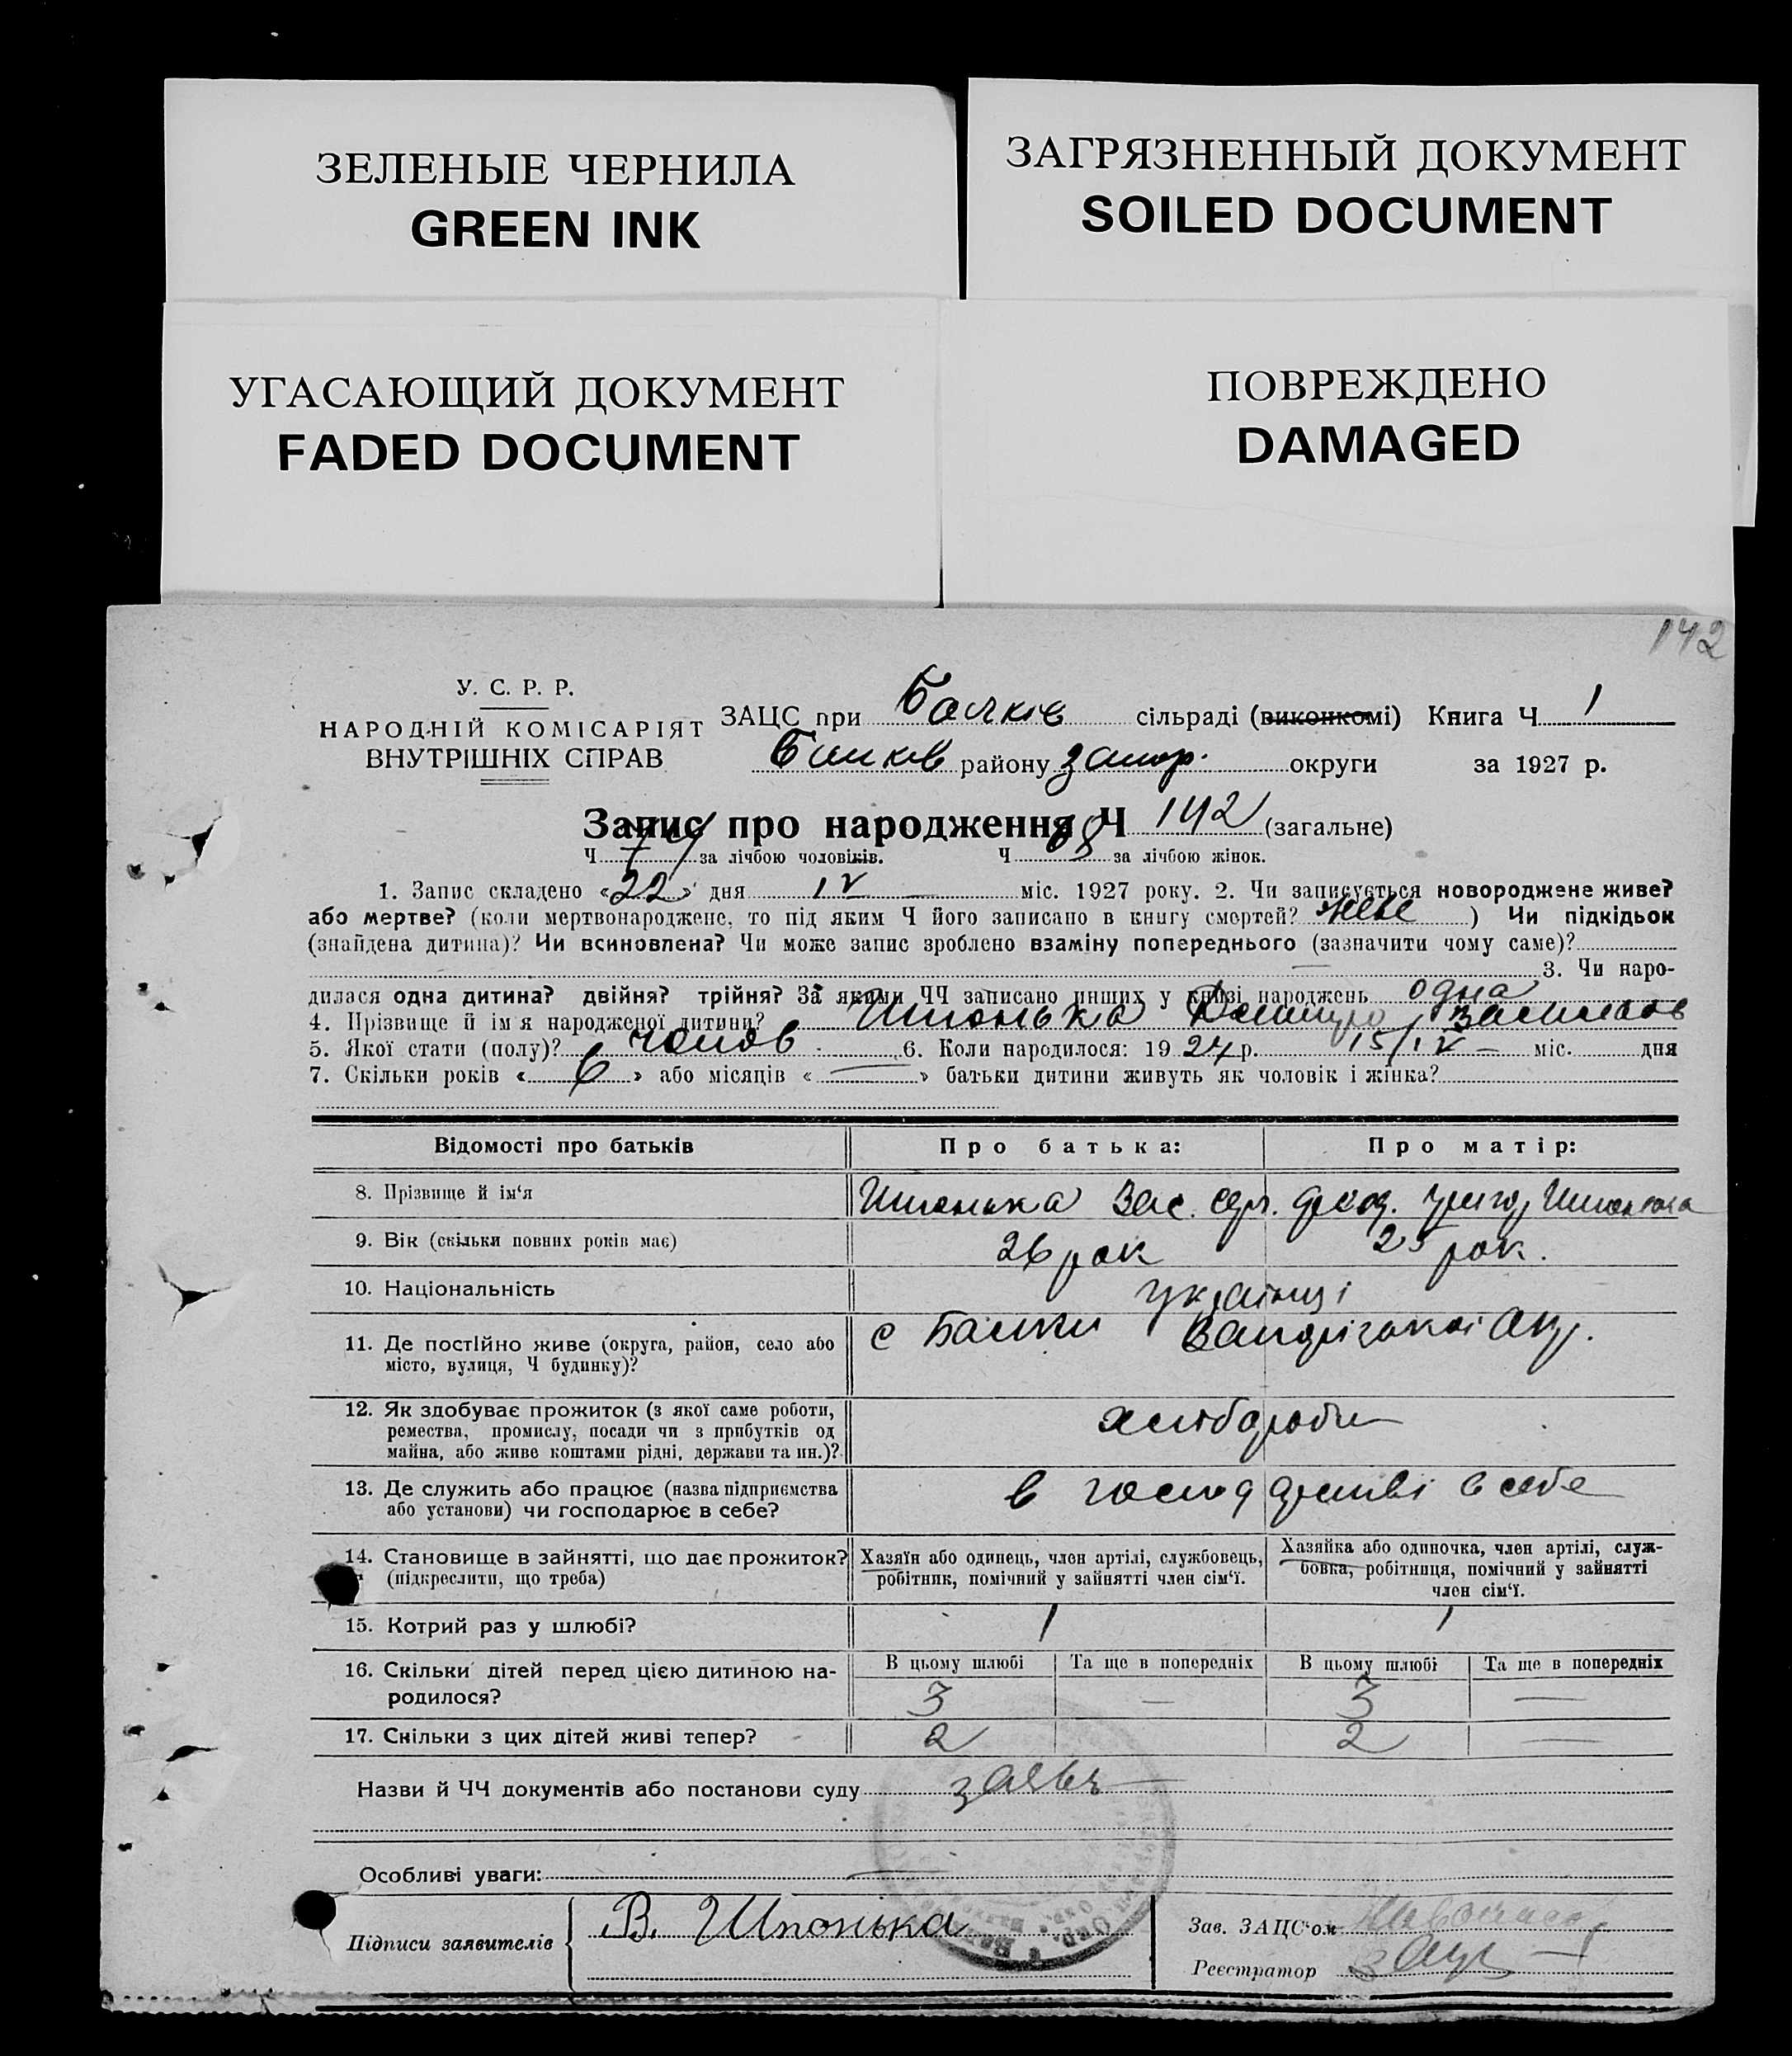 ЗЕЛЕНЫЕ ЧЕРНИЛА
GREEN INK
ЗАГРЯЗНЕННЫЙ ДОКУМЕНТ
SOILED DOCUMENT
УГАСАЮЩИЙ ДОКУМЕНТ
FADED DOCUMENT
ПОВРЕЖДЕНО
DAMAGED
142
У. С. Р. Р.
НАРОДНІЙ КОМІСАРІЯТ
ВНУТРІШНІХ СПРАВ
ЗАЦС при Балків сільраді (виконкомі) Книга Ч 1
району Запор. округи за 1927 р.
Запис про народження Ч 142 (загальне)
Ч 74 за лічбою чоловіків. Ч 68 за лічбою жінок.
1. Запис складено «22» дня IV міс. 1927 року. 2. Чи записується новороджене живе?
або мертве? (коли мертвонароджене, то під яким Ч його записано в книгу смертей? живе ) Чи підкідьок
(знайдена дитина)? Чи всиновлена? Чи може запис зроблено взаміну попереднього (зазначити чому саме)?
— 3. Чи наро-
дилася одна дитина? двійня? трійня? За якими ЧЧ записано инших у книзі народжень одна
4. Прізвище й ім'я народженої дитини? Шпонька Дмитро Васильов
5. Якої стати (полу)? чолов. 6. Коли народилося: 19 24 р. 15/IV — міс. дня
7. Скільки років « 6 » або місяців « — » батьки дитини живуть як чоловік і жінка?
Відомості про батьків Про батька: Про матір:
8. Прізвище й ім'я Шпонька Вас. Сер. Феод. Григор Шпонька
9. Вік (скільки повних років має) 26 рок 25 рок.
10. Національність українці
11. Де постійно живе (округа, район, село або с Балки Запорізької окр.
місто, вулиця, Ч будинку)?
12. Як здобуває прожиток (з якої саме роботи, хлібороби
ремества, промислу, посади чи з прибутків од
майна, або живе коштами рідні, держави та ин.)?
13. Де служить або працює (назва підприємства в господарстві в себе
або установи) чи господарює в себе?
14. Становище в зайнятті, що дає прожиток? Хазяїн або одинець, член артілі, службовець, Хазяйка або одиночка, член артілі, служ-
(підкреслити, що треба) робітник, помічний у зайнятті член сім'ї. бовка, робітниця, помічний у зайнятті
член сім'ї.
15. Котрий раз у шлюбі? 1 1
16. Скільки дітей перед цією дитиною на- В цьому шлюбі Та ще в попередніх В цьому шлюбі Та ще в попередніх
родилося? 3 — 3 —
17. Скільки з цих дітей живі тепер? 2 2 —
Назви й ЧЧ документів або постанови суду заява
Особливі уваги: —
Підписи заявителів В. Шпонька
Зав. ЗАЦС'ом
Реєстратор